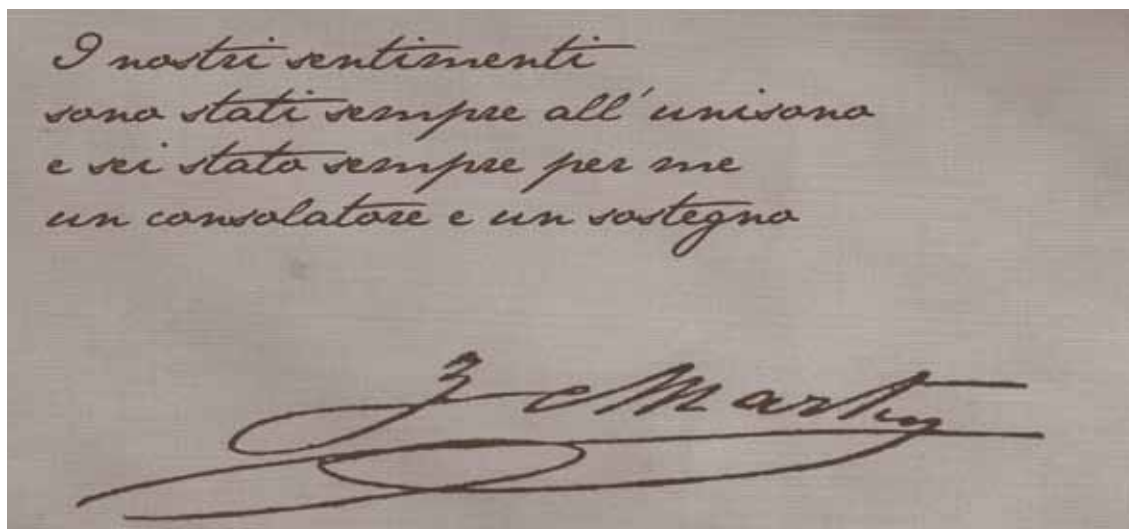 I nostri sentimenti
sono stati sempre all'unisono
e sei stato sempre per me
un consolatore e un sostegno
Martin